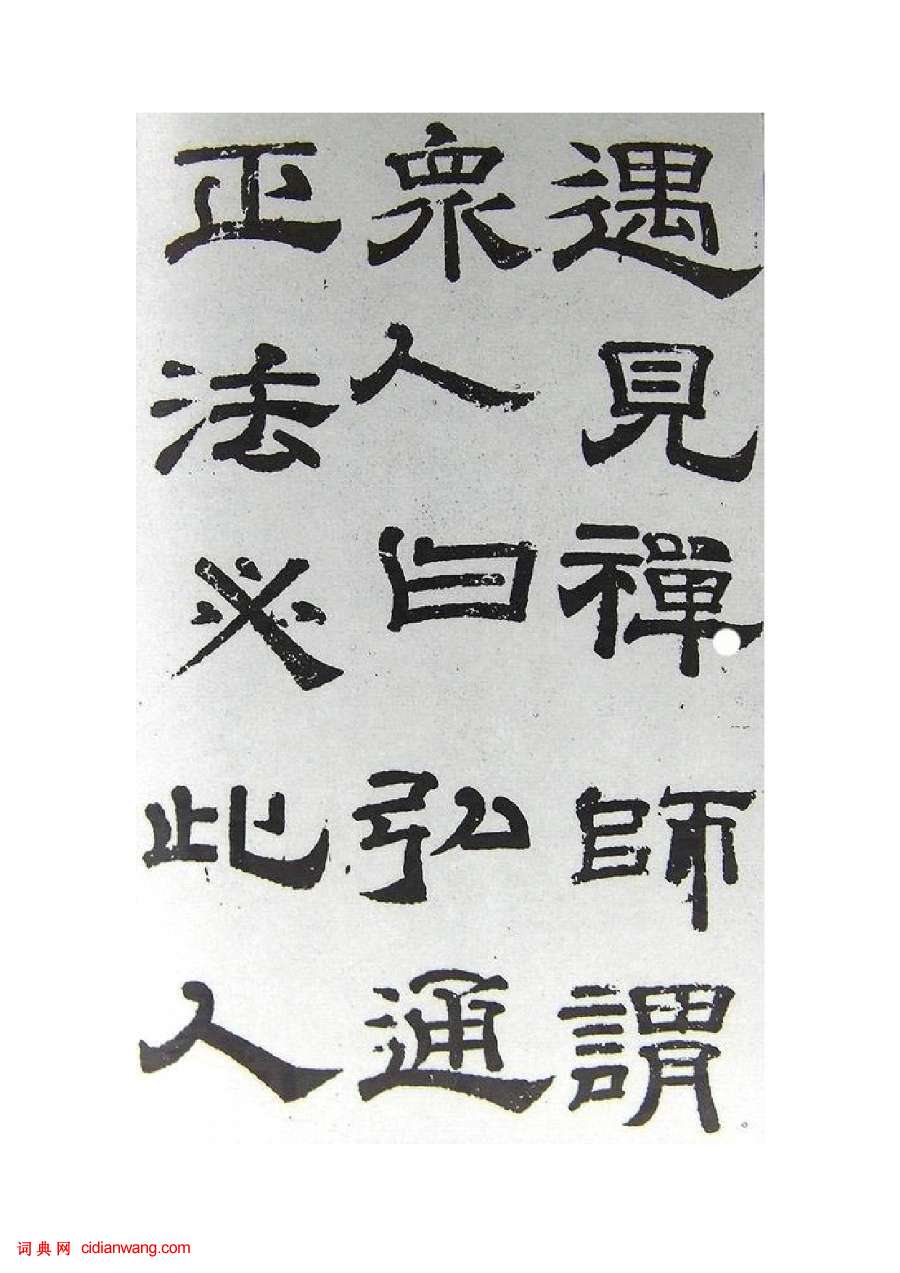 遇見禪師謂
眾人曰弘通
正法必此人
词典网 cidianwang.com